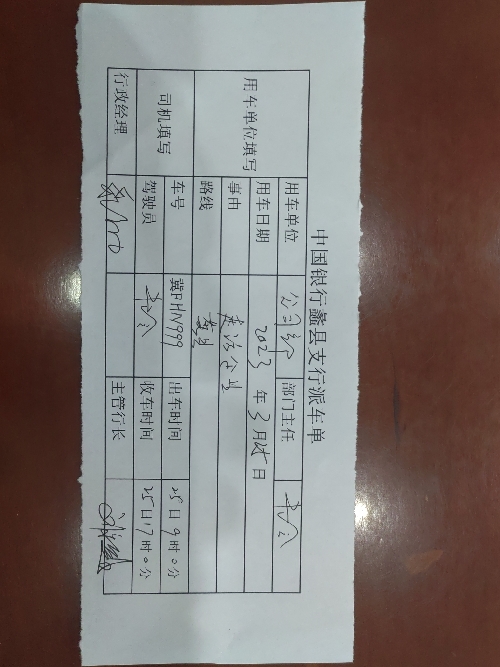 中国银行蠡县支行派车单
用车单位填写 用车单位 公司部 部门主任
用车日期 2023 年 3 月 25 日
事由 走访企业
路线 蠡县
司机填写 车号 冀FHN999 出车时间 25日9时0分
驾驶员 收车时间 25日17时0分
行政经理 主管行长